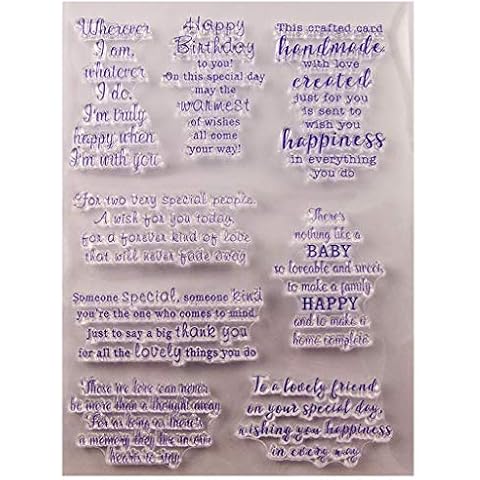 Wherever
I am,
whatever
I do.
I'm truly
happy when
I'm with you
Happy
Birthday
to you!
On this special day
may the
warmest
of wishes
all come
your way!
This crafted card
handmade
with love
created
just for you
is sent to
wish you
happiness
in everything
you do
For two very special people,
A wish for you today,
for a forever kind of love
that will never fade away
There's
nothing like a
BABY
so loveable and sweet,
to make a family
HAPPY
and to make a
home complete
Someone special, someone kind
you're the one who comes to mind
just to say a big thank you
for all the lovely things you do
Those we love can never
be more than a thought away
For as long as there's
a memory they live in our
hearts to stay
To a lovely friend
on your special day,
wishing you happiness
in every way